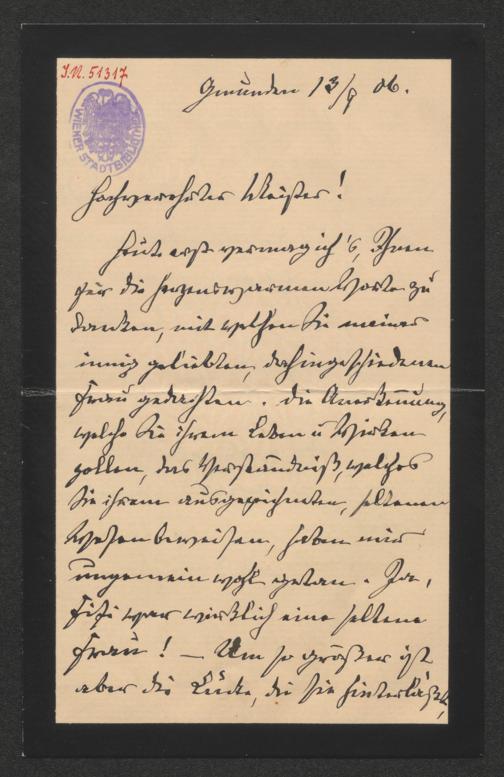 J.N. 51317
WIENER STADTBIBLIOTHEK
Gmunden 13/9 06.
Hochverehrter Meister!
Heute erst vermag ich's, Ihnen
für die herzenswarmen Worte zu
danken, mit welchen Sie meiner
innig geliebten, dahingeschiedenen
Frau gedachten. Die Anerkennung,
welche Sie ihrem Leben u Wirken
zollen, das Verständniß, welches
Sie ihrem ausgezeichneten, seltenen
Wesen beweisen, haben mir
ungemein wohl getan. Ja,
Fifi war wirklich eine seltene
Frau! — Um so größer ist
aber die Lücke, die sie hinterläßt,